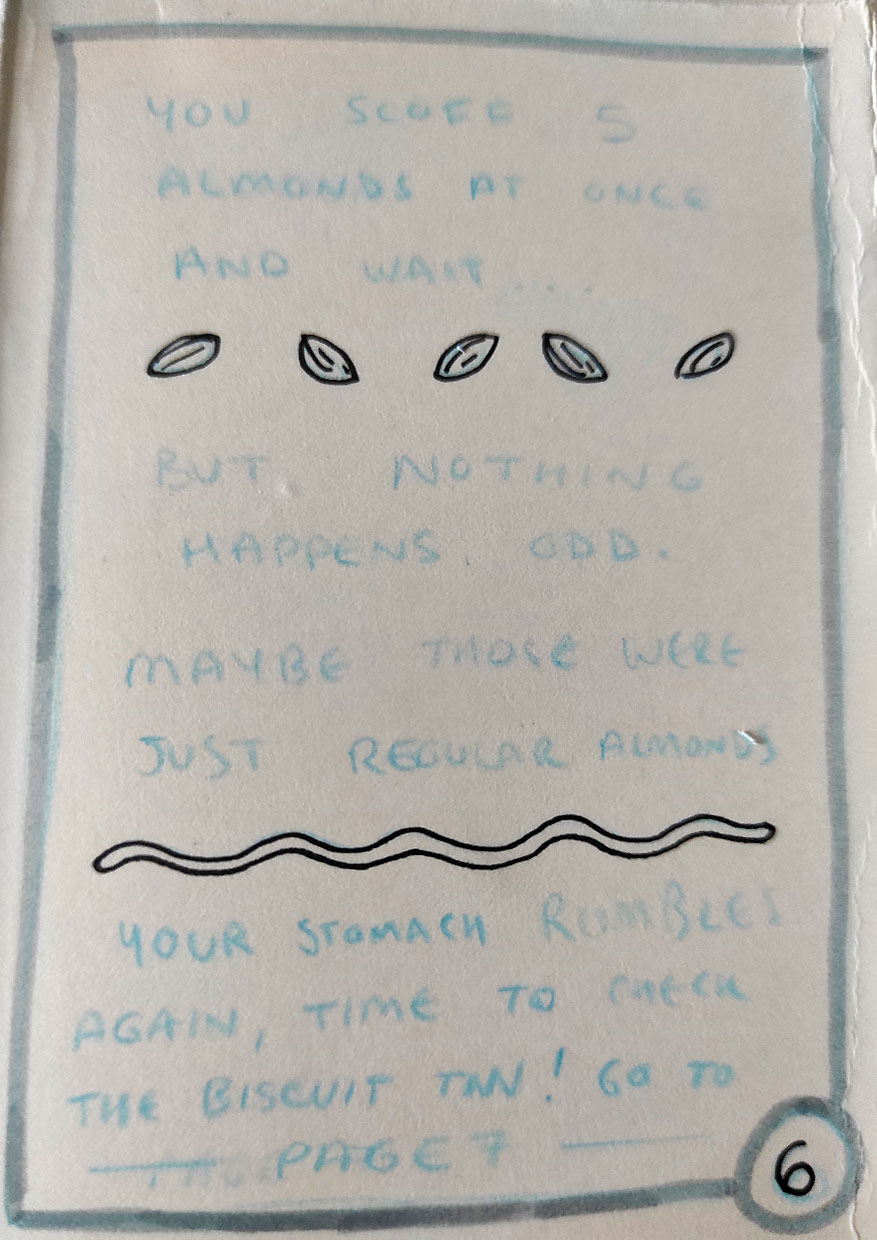 YOU SCOFF 5
ALMONDS AT ONCE
AND WAIT....
BUT NOTHING
HAPPENS. ODD.
MAYBE THOSE WERE
JUST REGULAR ALMONDS
YOUR STOMACH RUMBLES
AGAIN, TIME TO CHECK
THE BISCUIT TIN! GO TO
PAGE 7
6